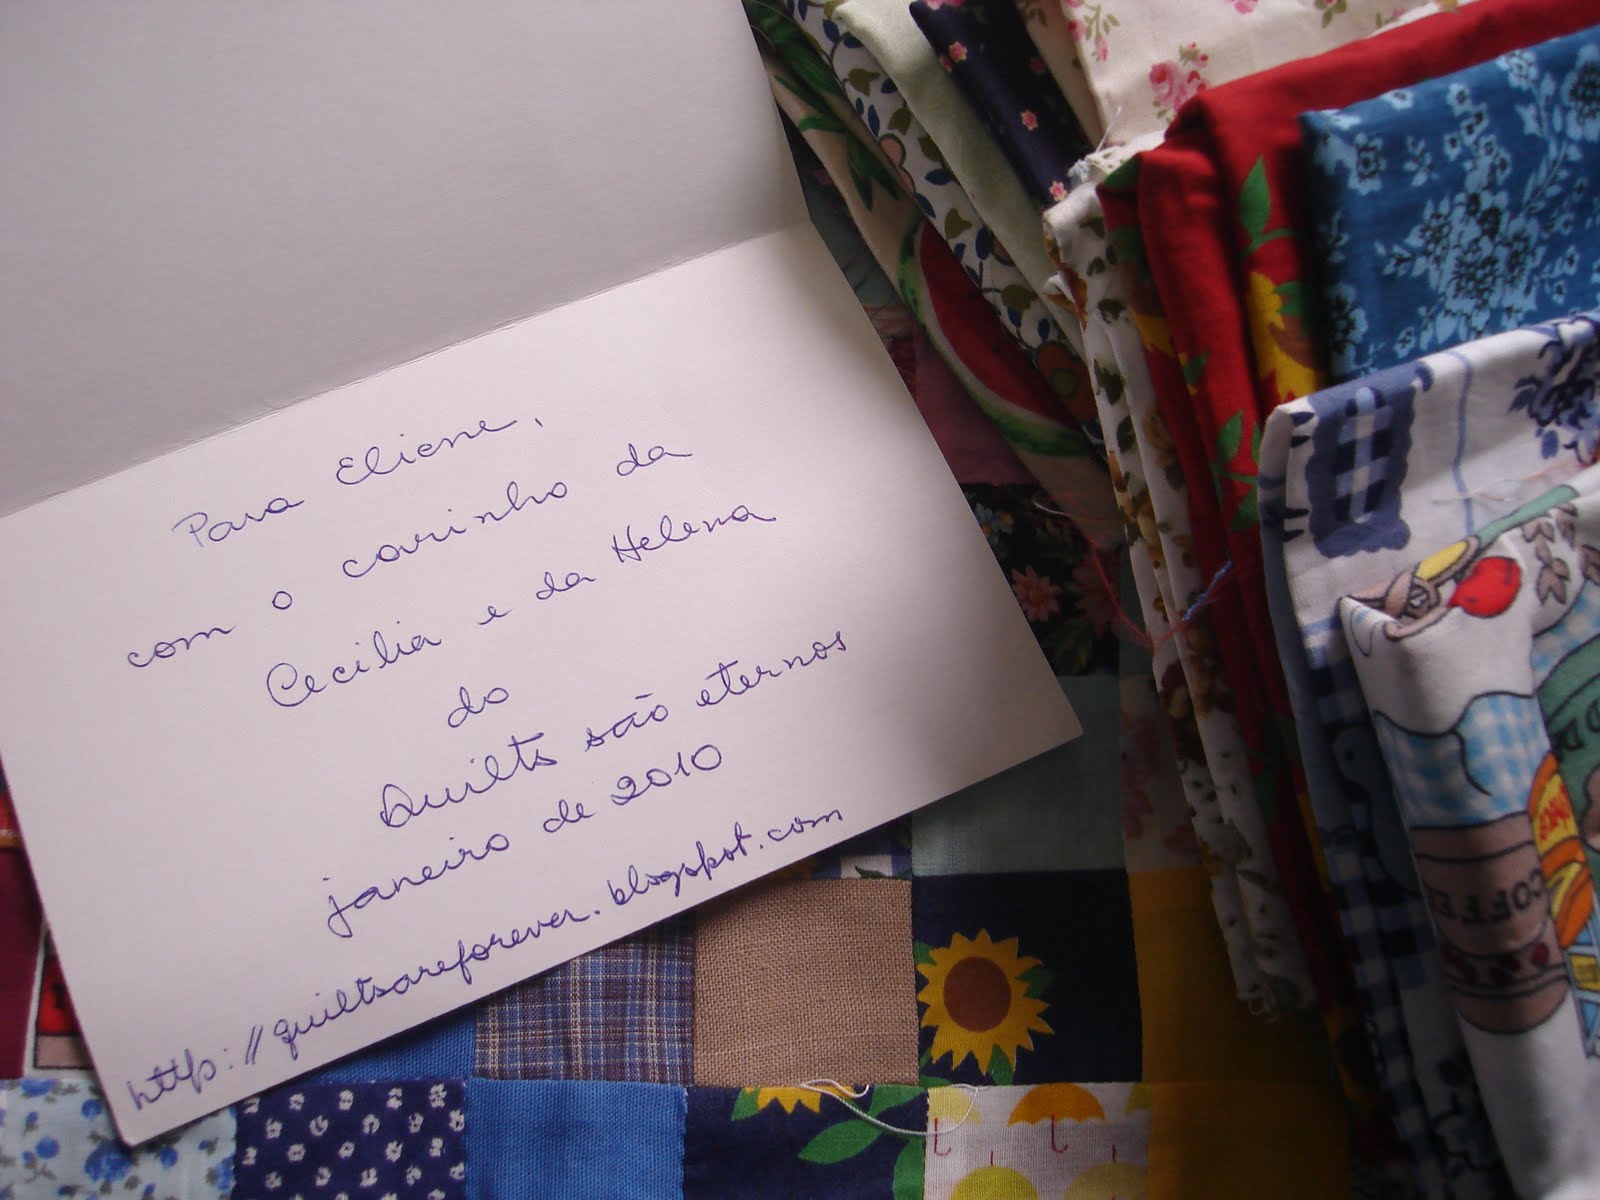 Para Eliane,
com o carinho da
Cecilia e da Helena
do
Quilts são eternos
janeiro de 2010
http://quiltsareforever.blogspot.com
COFFEE